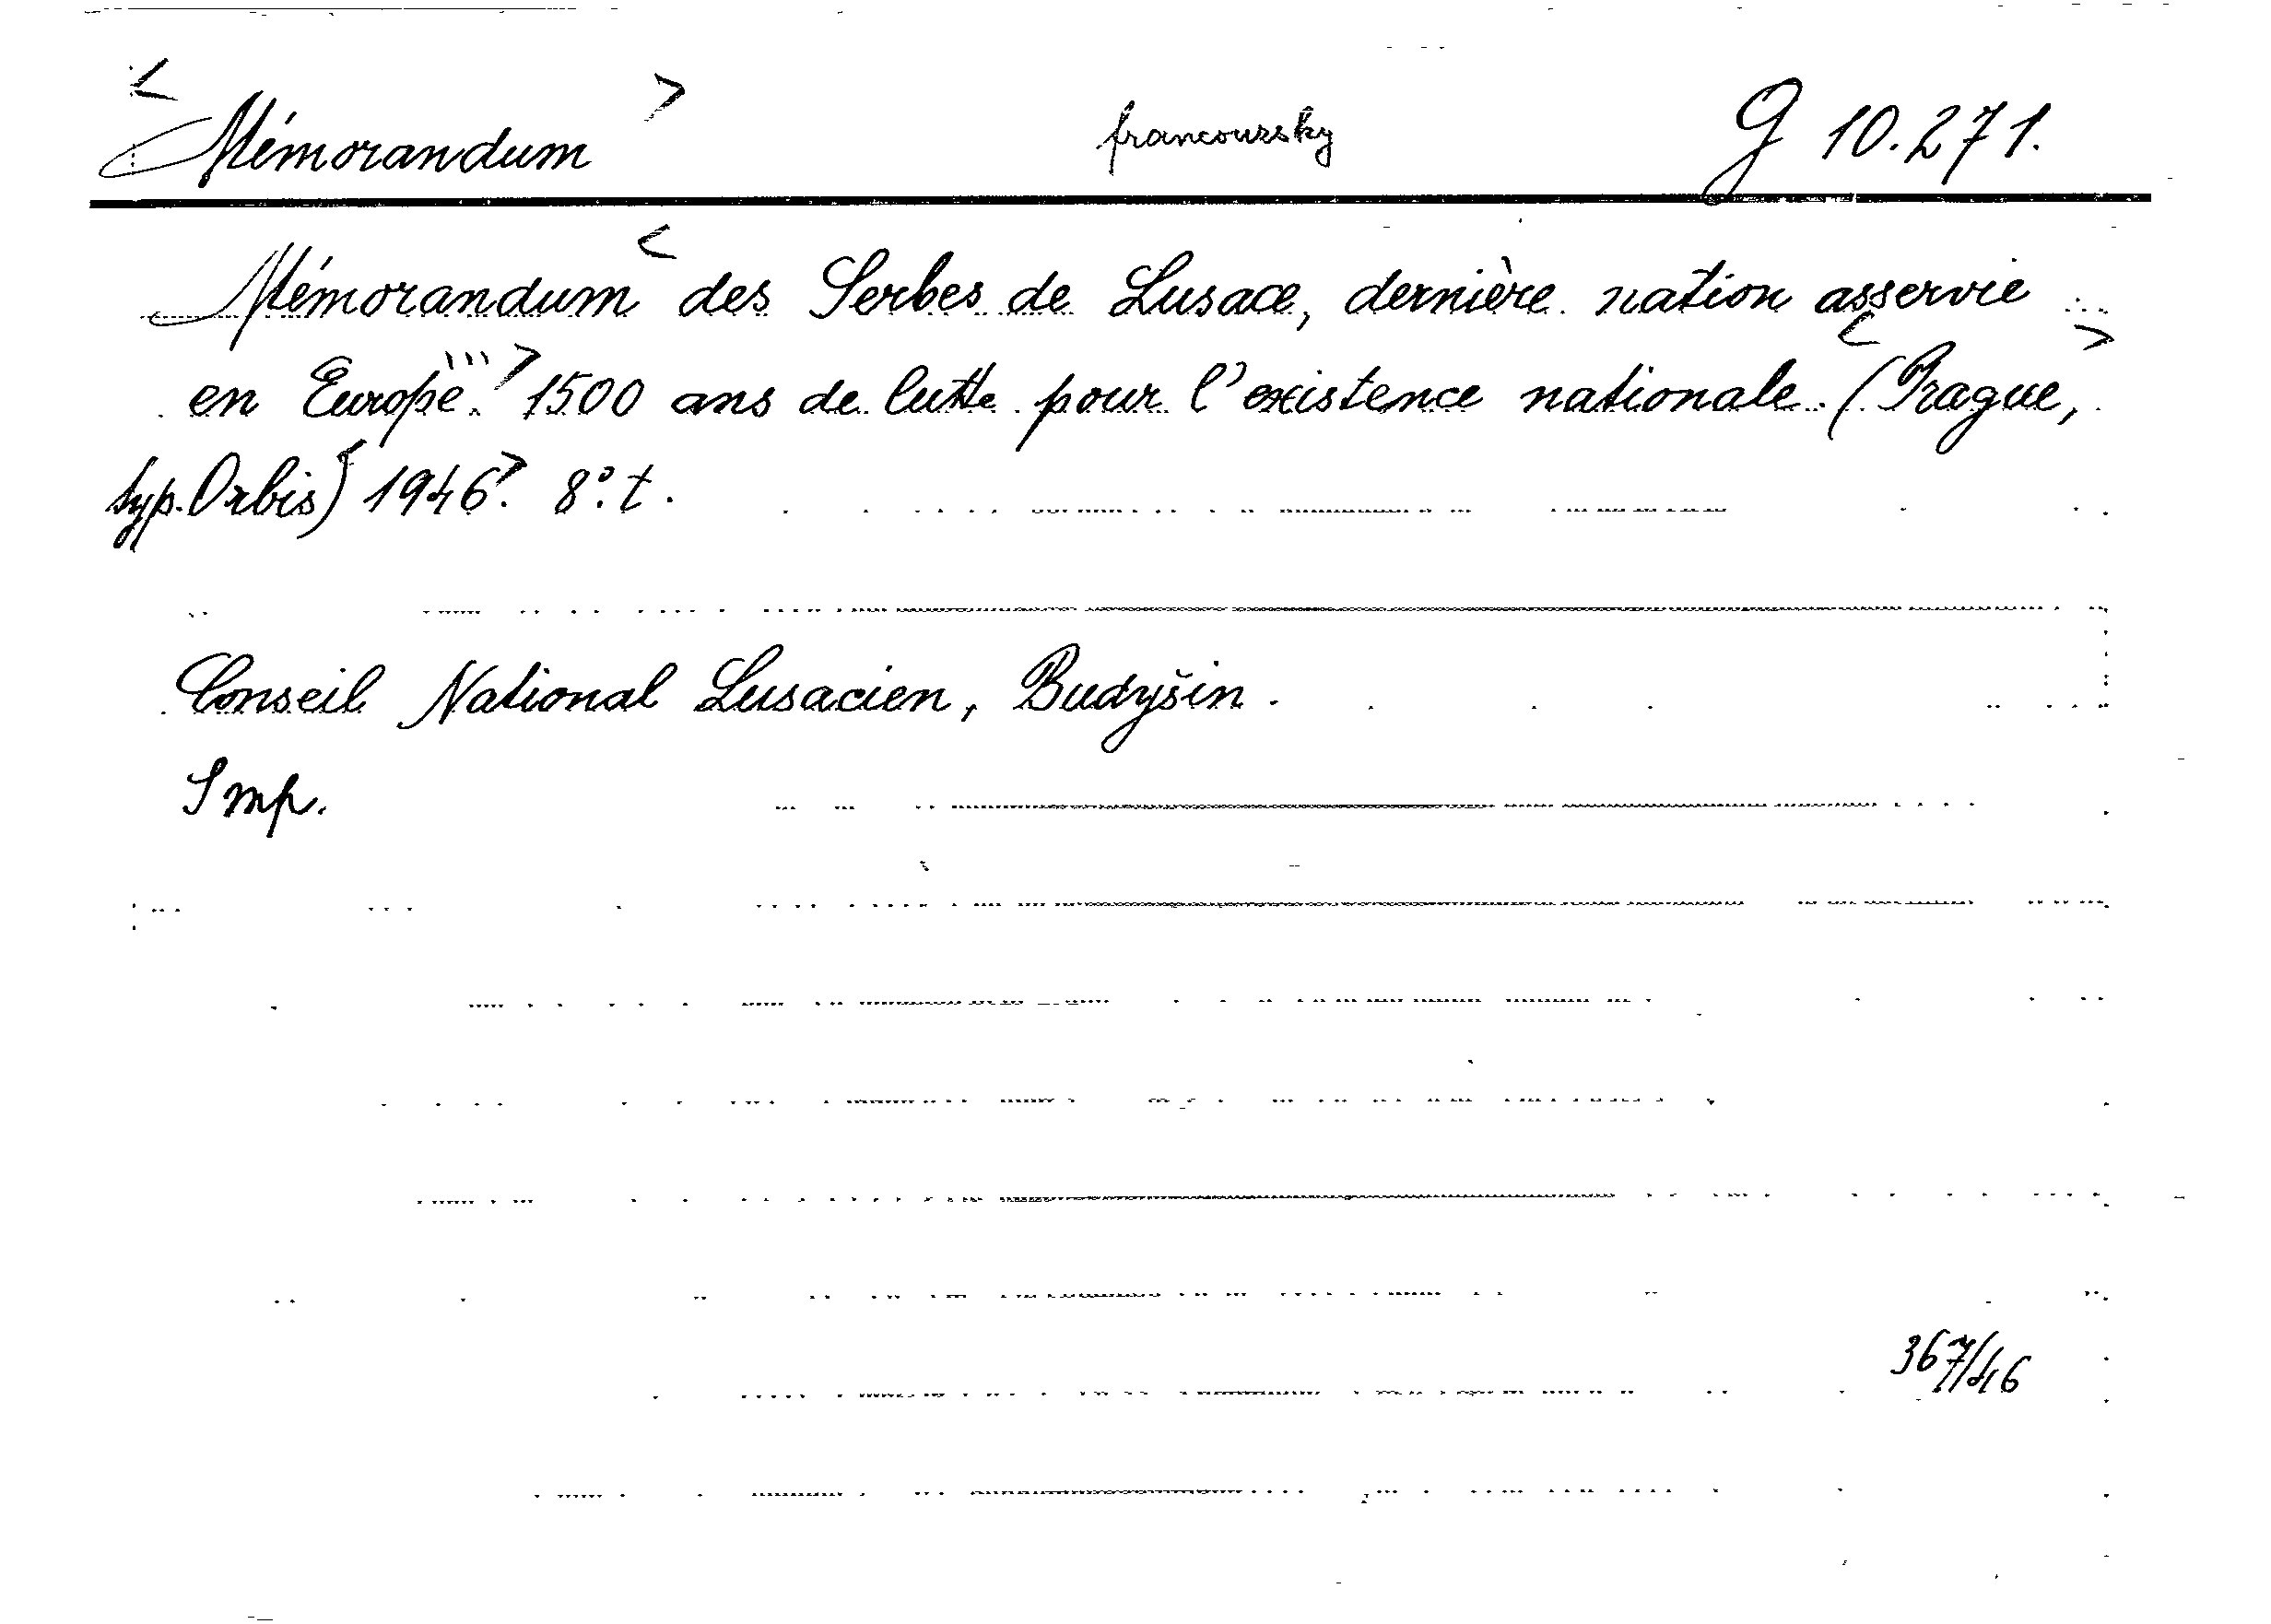 <Mémorandum> francouzsky G 10.271.
Mémorandum < des Serbes de Lusace, dernière nation asservie
en Europe.''' > 1500 ans de lutte pour l'existence nationale. (<Prague,>
typ. Orbis) <1946>. 8°. t.
Conseil National Lusacien, Budyšin.
Imp.
367/46